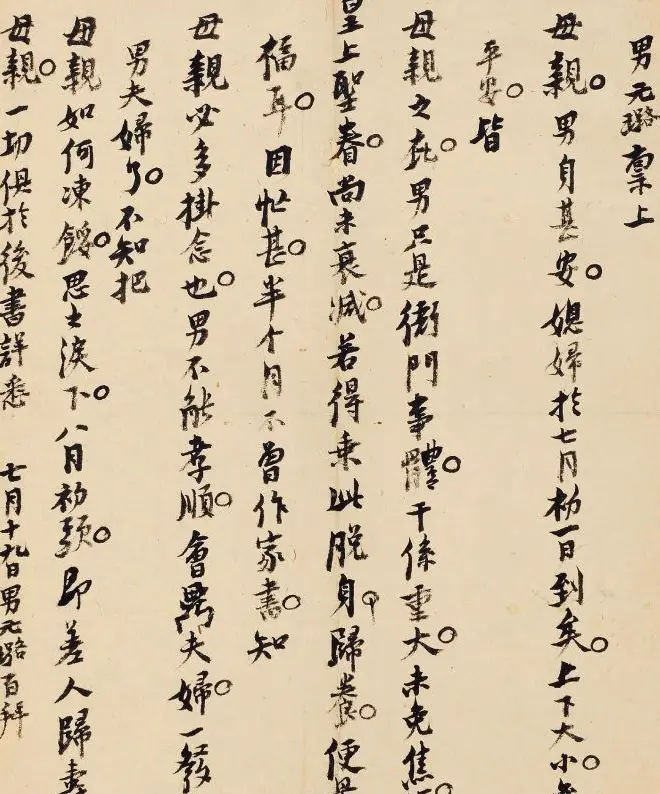 男元璐稟上
母親。男自甚安。媳婦於七月初一日到矣。上下大小。
平安。皆
母親之庇。男只是衙門事體。干係重大。未免焦
皇上聖眷。尚未衰減。若得乘此脫身。歸養。便是
福耳。因忙甚。半个月不曾作家書。知
母親必多掛念也。男不能孝順。會夫婦。一發
男夫婦了。不知把
母親如何凍餒。思之淚下。八月初頭。即差人歸壽
母親。一切俱於後書詳悉 七月十九日男元璐百拜